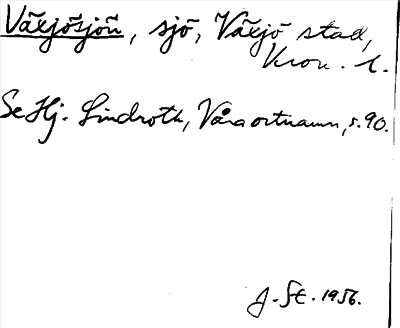 Växjösjön, sjö, Växjö stad,
Kron. l.
Se Hj. Lindroth, Våra ortnamn, s. 90.
J. St. 1956.